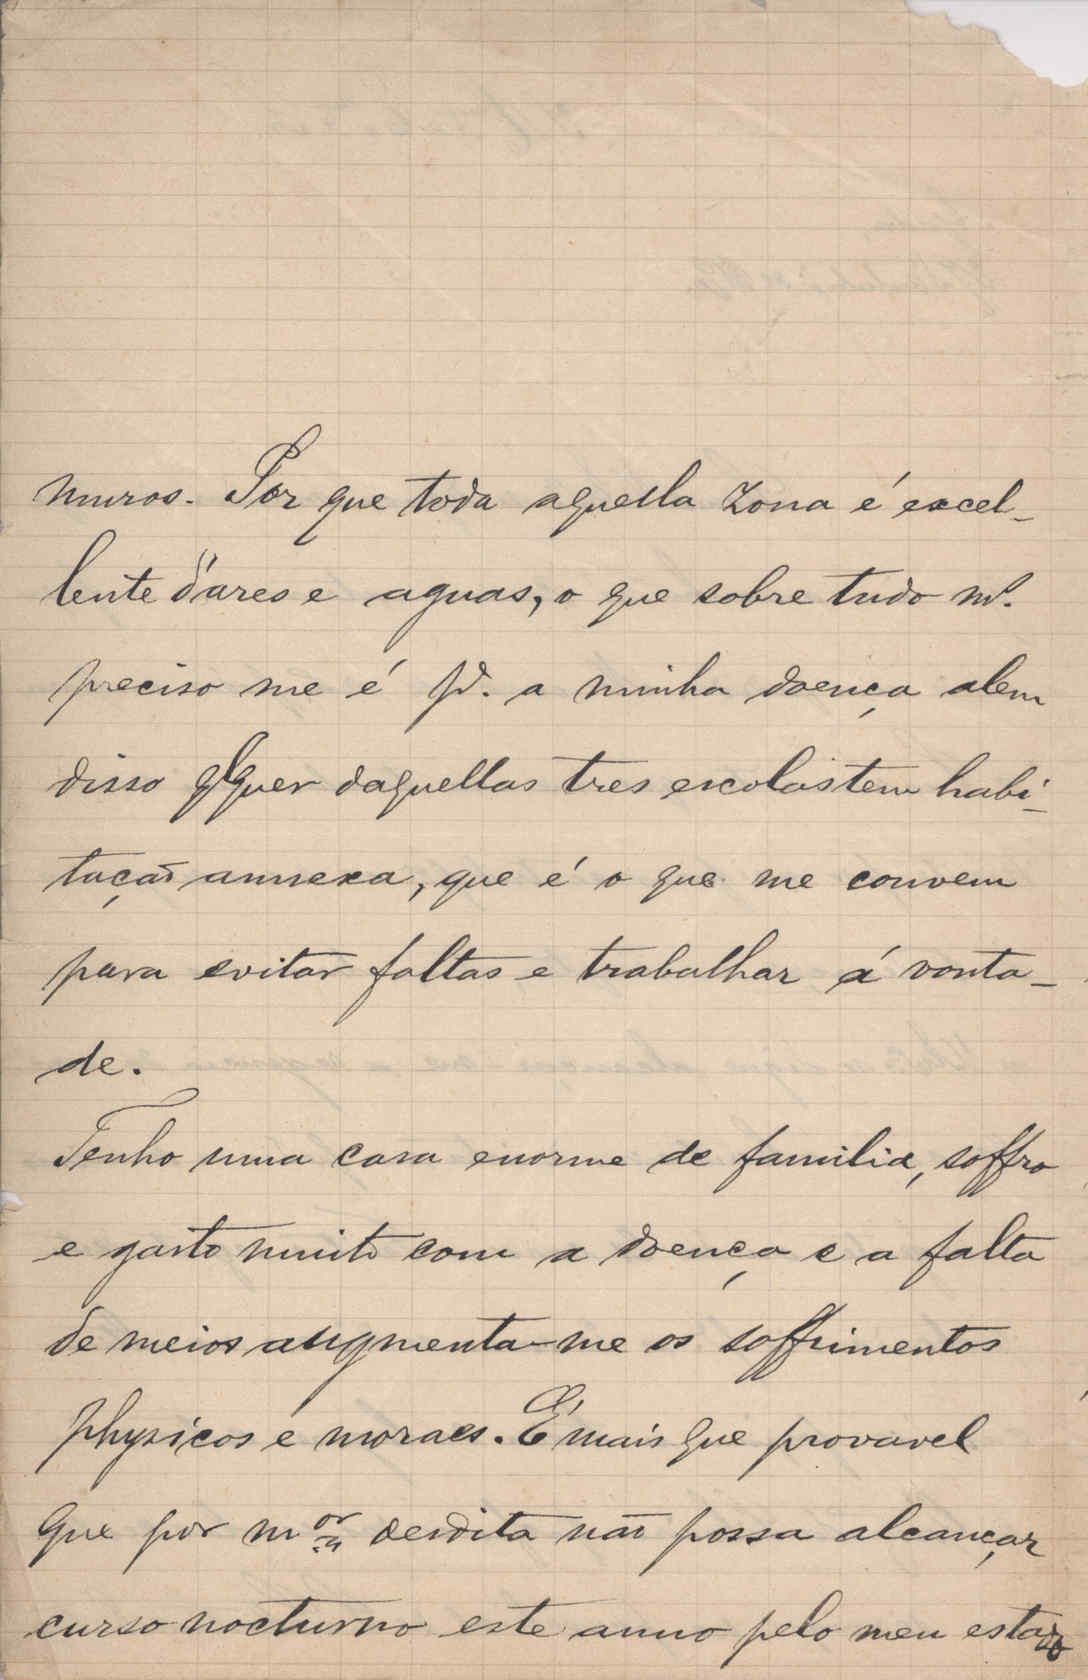 muros. Por que toda aquella zona é excel-
lente d'ares e aguas, o que sobre tudo mº.
preciso me é pª. a minha doença alem
disso qlquer daquellas tres escolas tem habi-
tação annexa, que é o que me convem
para evitar faltas e trabalhar á vonta-
de.
Tenho uma casa enorme de familia, soffro
e gasto muito com a doença e a falta
de meios augmenta-me os soffrimentos
physicos e moraes. É mais que provavel
que por mor desdita não possa alcançar
curso nocturno este anno pelo meu estado